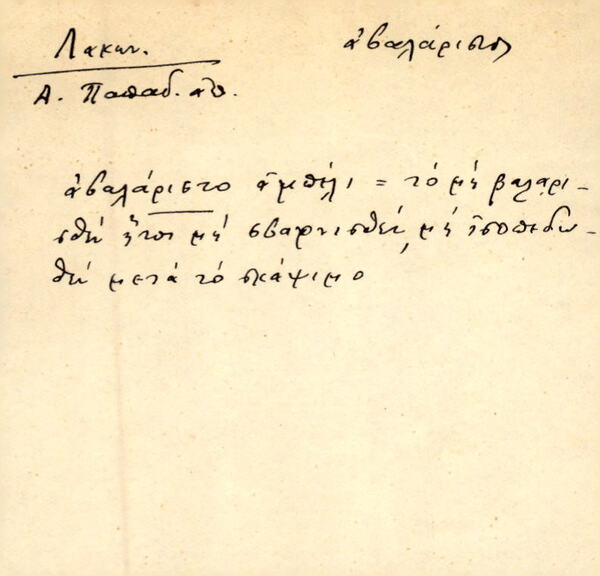 Λακων.
ἀβαλάριστος
Α. Παπαδ. αὐ.
ἀβαλάριστο ἀμπέλι = τὸ μὴ βαλαρι-
σθὲν ἤτοι μὴ σβαρνισθέν, μὴ ἰσοπεδω-
θὲν μετὰ τὸ σκάψιμο